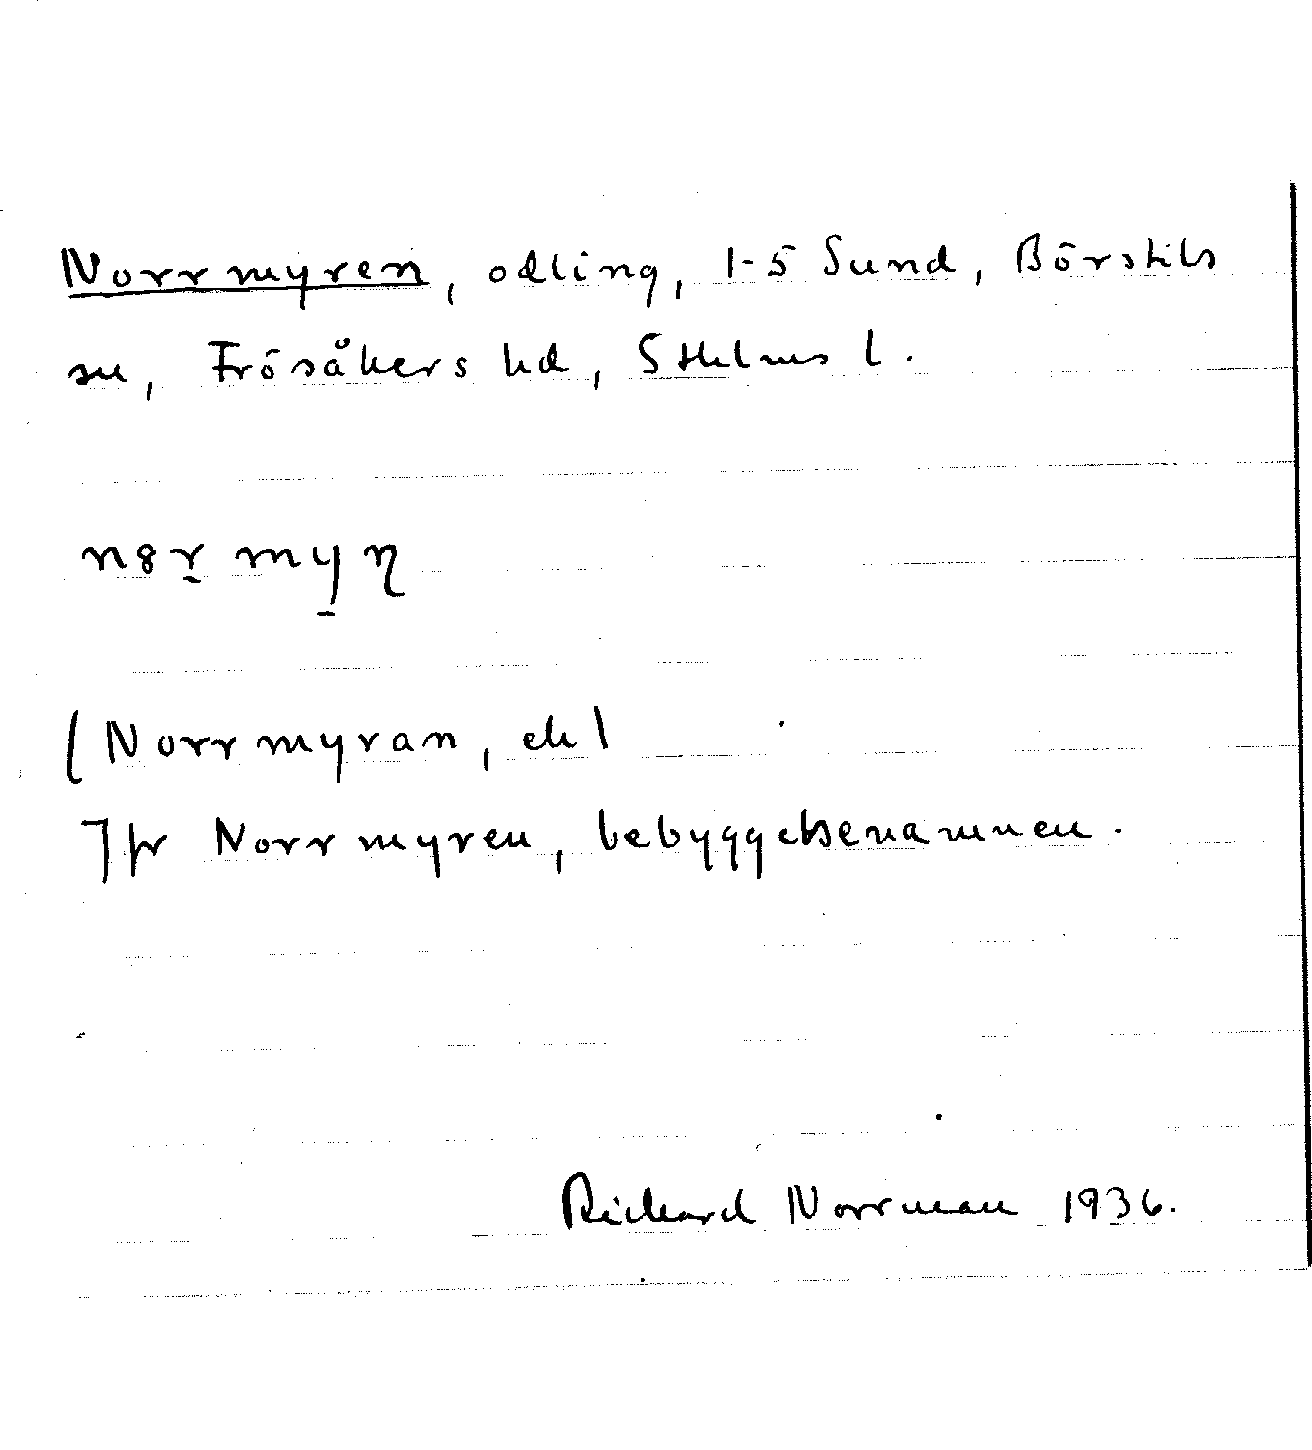 Norrmyren, odling, 1-5 Sund, Börstils
sn, Frösåkers hd, Sthlms l.
n8r̲ my̲ η
(Norrmyran, ek)
Jfr Norrmyren, bebyggelsenamnen.
Rickard Norrman 1936.